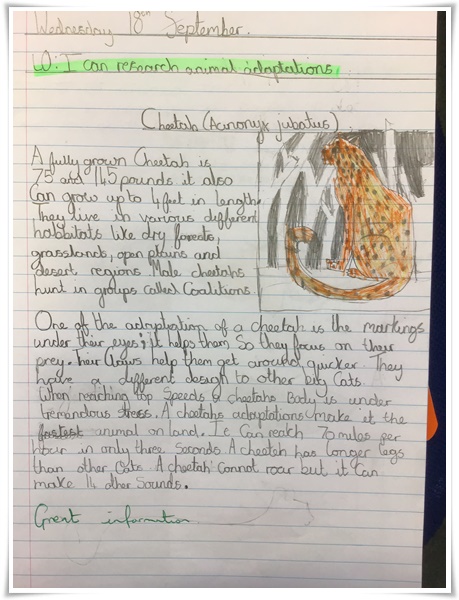 Wednesday 18th September.
W: I can research animal adaptations
Cheetah (Acinonyx jubatus)
A fully grown Cheetah is
75 and 145 pounds it also
Can grow up to 4 feet in length.
They live in various different
habbitats like dry forests,
grasslands, open plains and
desert regions. Male cheetahs
hunt in groups called Coalitions.
One of the adaptation of a cheetah is the markings
under their eyes; it helps them so they focus on their
prey. Their Claws help them get around quicker. They
have a different design to other big Cats.
When reaching top Speeds a cheetahs Body is under
tremendous stress. A cheetahs adaptations make it the
fastest animal on land. It Can reach 70 miles per
hour in only three Seconds. A cheetah has longer legs
than other Cats. A cheetah Cannot roar but it Can
make 14 other Sounds.
Great information